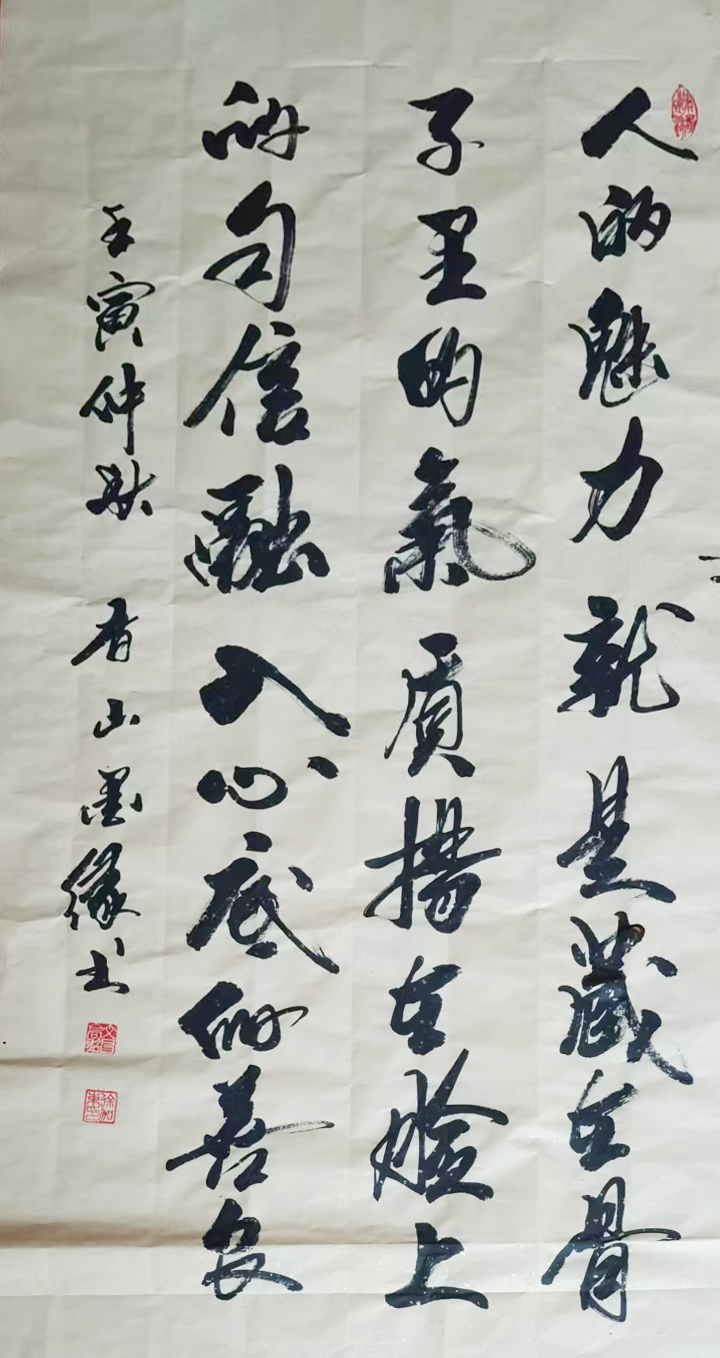 人的魅力就是藏在骨
子里的氣质揚在脸上
的自信融入心底的善良
壬寅仲秋 香山墨缘书